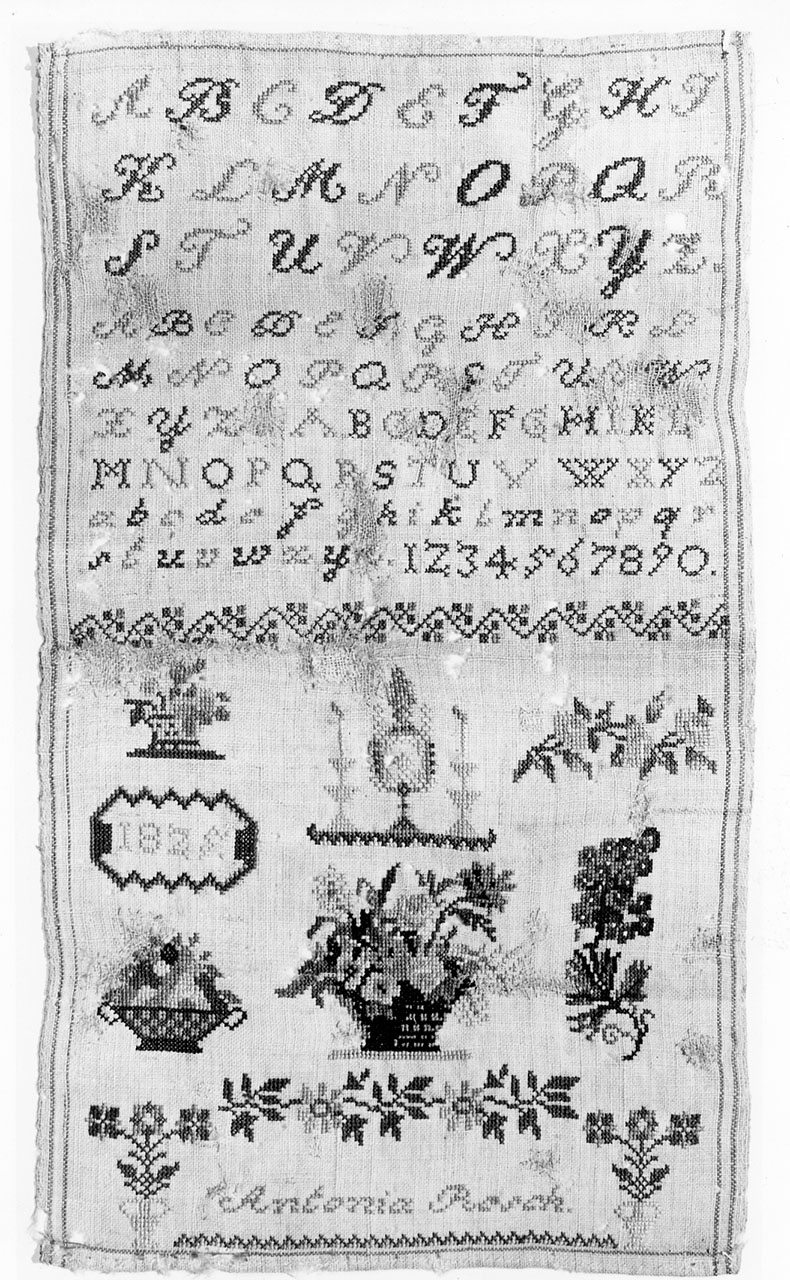 A B C D E F G H I
K L M N O P Q R
S T U V W X Y Z.
A B C D E F G H I K L
M N O P Q R S T U V W
X Y Z A B C D E F G H I K L
M N O P Q R S T U V W X Y Z
a b c d e f g h i k l m n o p q r
s t u v w x y z. 1234567890.
Antonia Rosch.